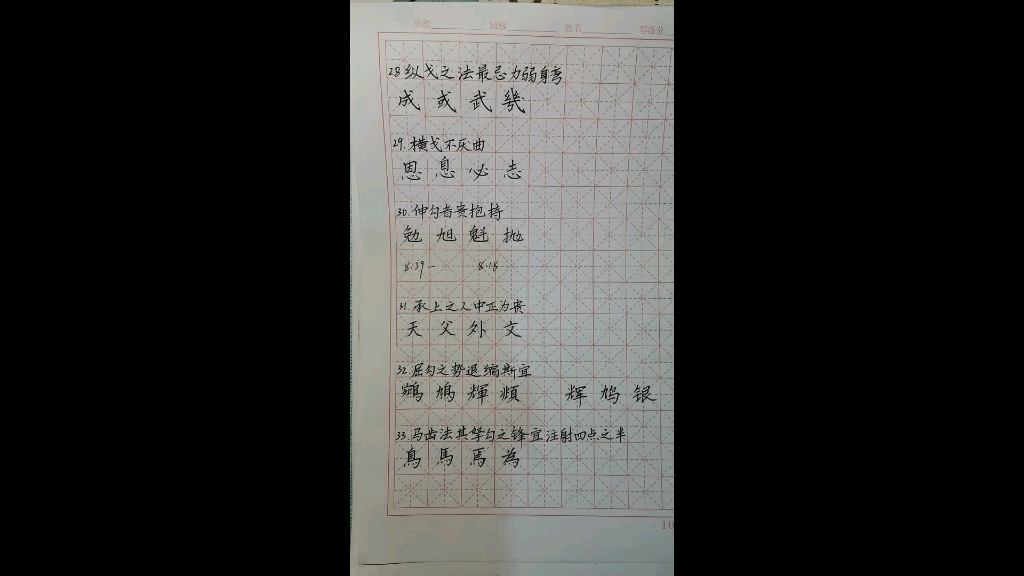 学校 班级 姓名 等级分
28.纵戈之法最忌力弱身弯
成 或 武 幾
29.横戈不厌曲
思 息 必 志
30.伸勾者贵抱持
勉 旭 魁 抛
31.承上之人中正为贵
天 父 外 文
32.屈勾之势退缩斯宜
鸠 輝 辉 鸠 银
33.马齿法其拏勾之锋宜注射四点之半
鳥 馬 焉 為
10